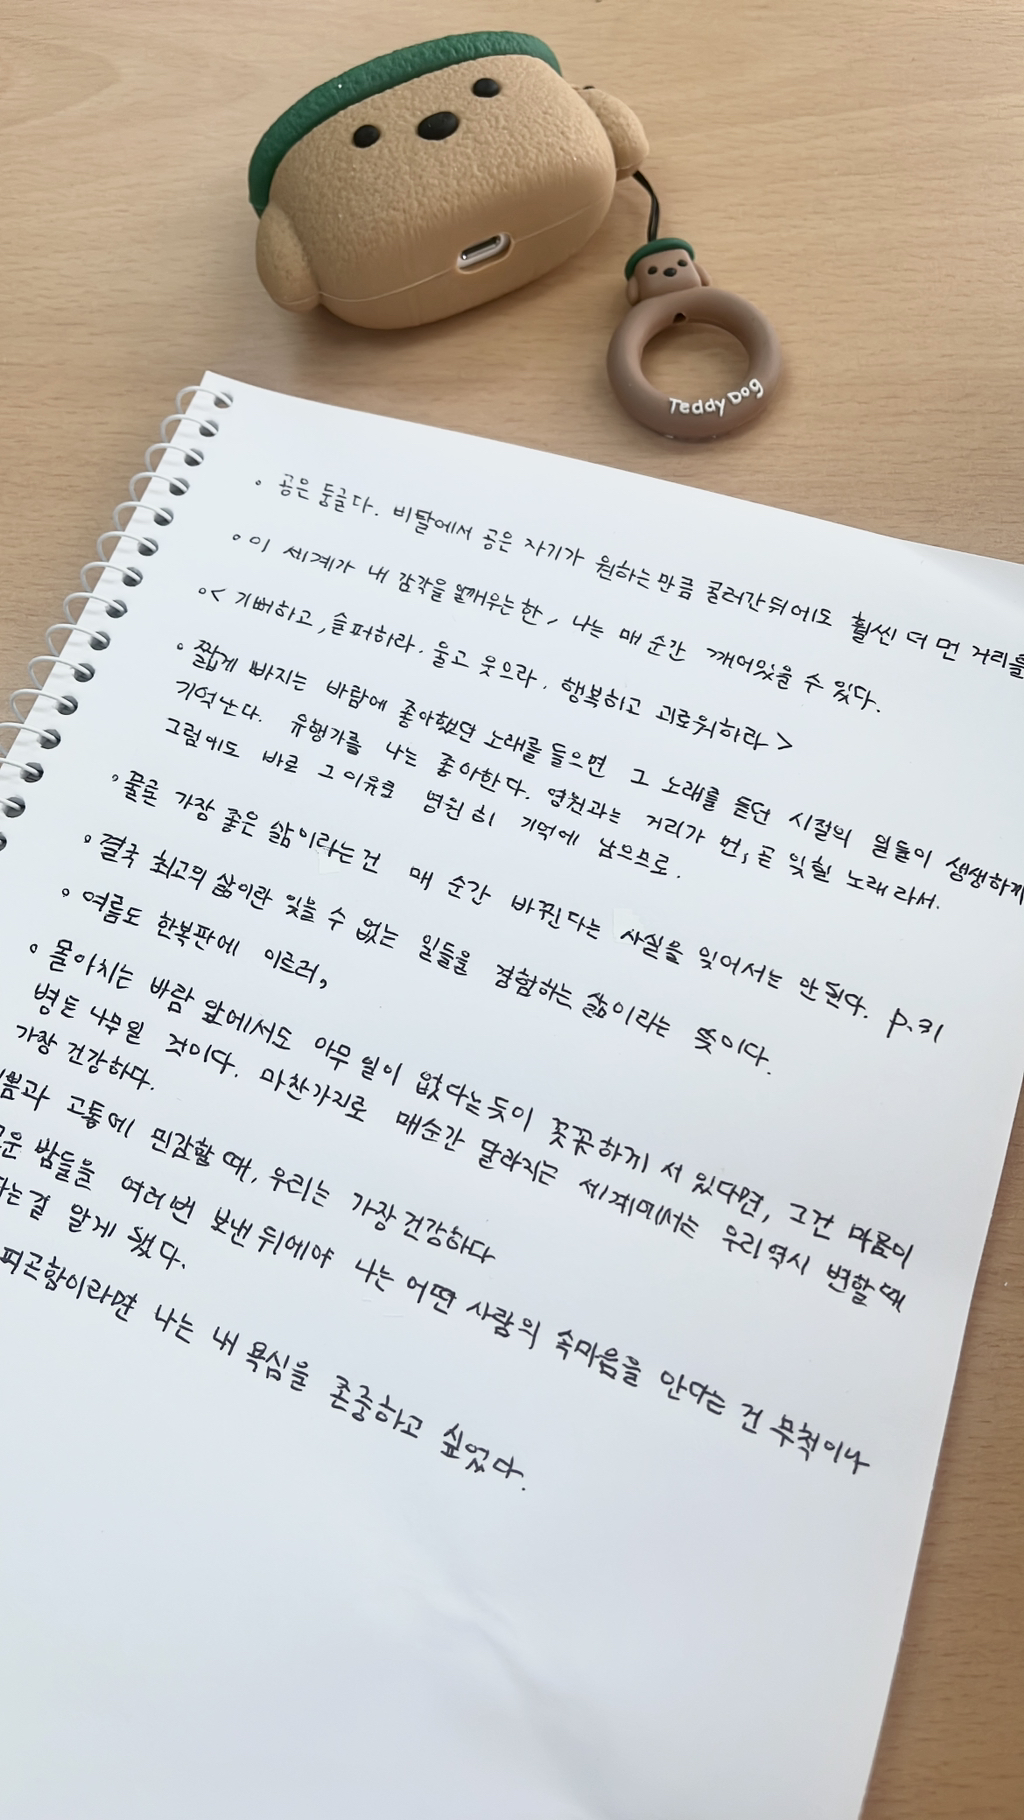 Teddy Dog
• 공은 둥글다. 비탈에서 공은 자기가 원하는 만큼 굴러간 뒤에도 훨씬 더 먼 거리를
• 이 세계가 내 감각을 일깨우는 한, 나는 매 순간 깨어있을 수 있다.
• < 기뻐하고, 슬퍼하라. 울고 웃으라. 행복하고 괴로워하라 >
• 짧게 빠지는 바람에 좋아했던 노래를 들으면 그 노래를 듣던 시절의 일들이 생생하게
기억난다. 유행가를 나는 좋아한다. 영원과는 거리가 먼, 곧 잊힐 노래라서.
그럼에도 바로 그 이유로 영원히 기억에 남으므로.
• 물론 가장 좋은 삶이라는 건 매 순간 바뀐다는 사실을 잊어서는 안된다. p.31
• 결국 최고의 삶이란 잊을 수 없는 일들을 경험하는 삶이라는 뜻이다.
• 여름도 한복판에 이르러,
• 몰아치는 바람 앞에서도 아무 일이 없다는듯이 꼿꼿하게 서 있다면, 그건 마음이
병든 나무일 것이다. 마찬가지로 매순간 달라지는 세계에서는 우리 역시 변할 때
가장 건강하다.
쁨과 고통에 민감할 때, 우리는 가장 건강하다
운 밤들을 여러번 보낸 뒤에야 나는 어떤 사람의 속마음을 안다는 건 무척이나
다는걸 알게 됐다.
피곤함이라면 나는 내 욕심을 존중하고 싶었다.